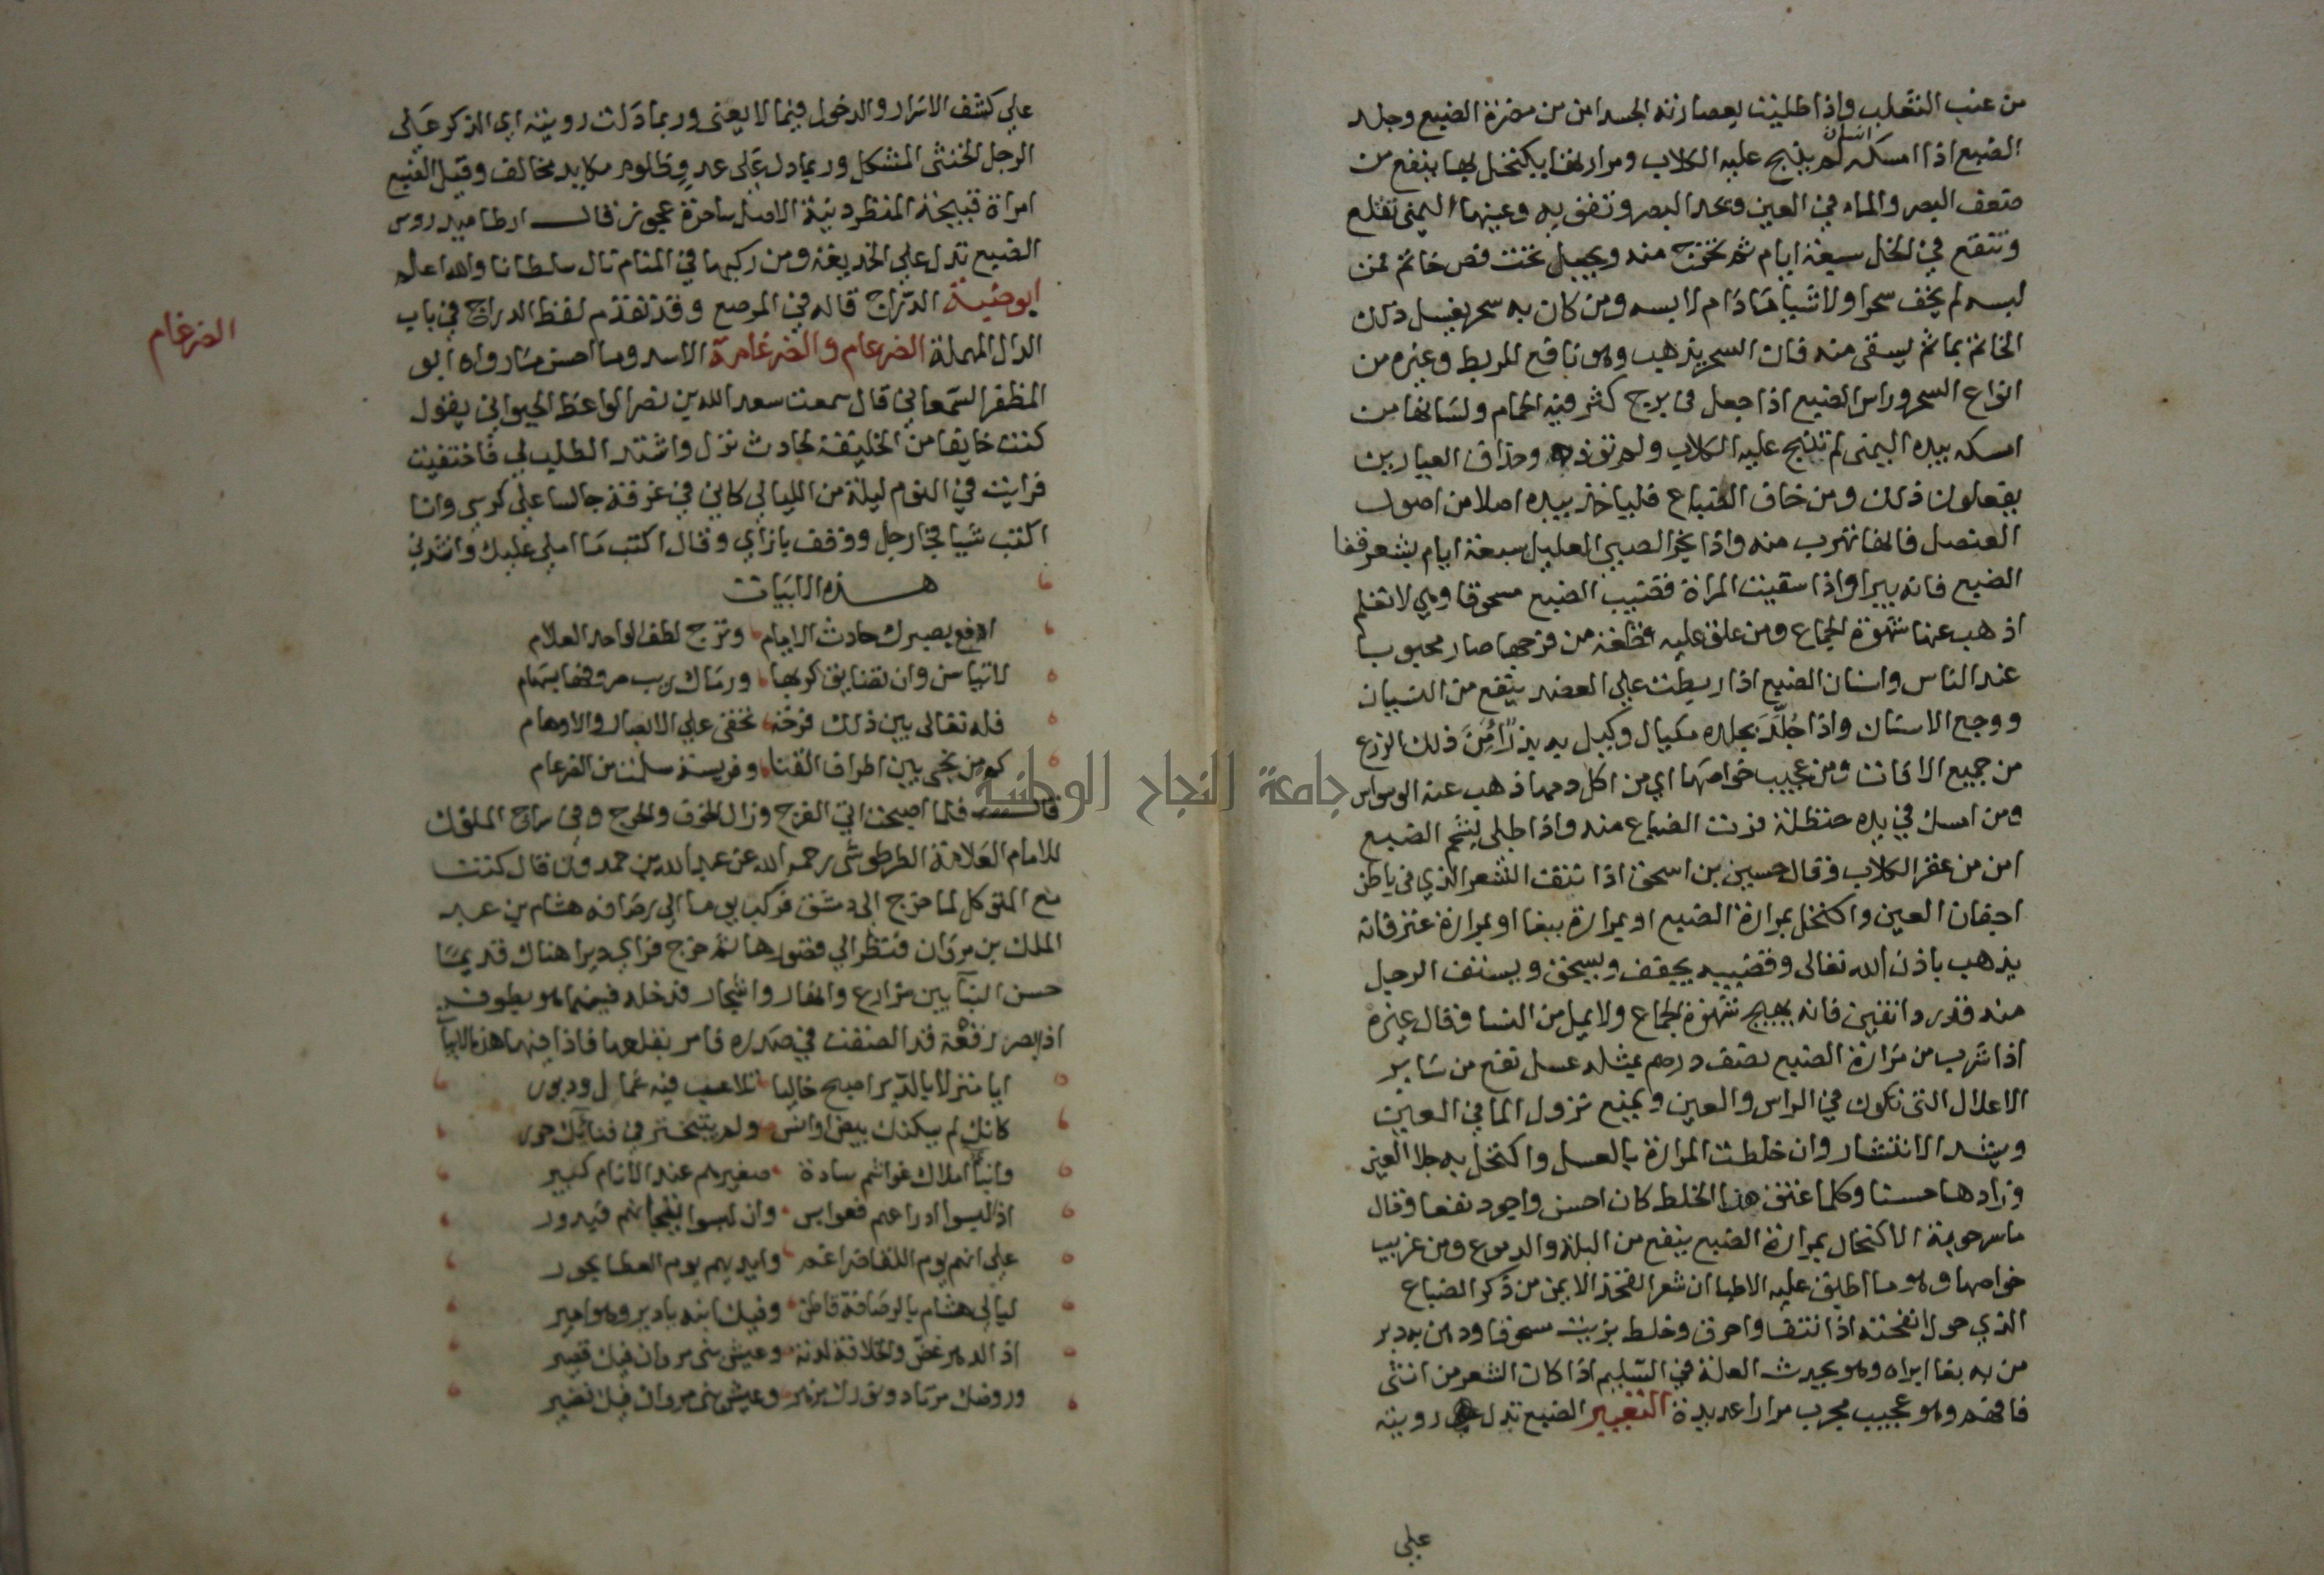 من عنب الثعلب واذا طليت بعصارته الجسد امن من مضرة الضبع وجلد
الضبع اذا امسكه انسان لم ينبح عليه الكلاب ومرارتها يكتحل بها ينفع من
ضعف البصر والماء في العين ويحد البصر وتضي به وعينها اليمني تقلع
وتنقع في الخل سبعة ايام ثم تخرج منه ويجعل تحت فص خاتم فمن
لبسه لم يخف سحرا ولا شيا مادام لابسه ومن كان به سحر يغسل ذلك
الخاتم بما ثم يسقى منه فان السحر يذهب وهو نافع للربط وغيره من
انواع السحر وراس الضبع اذا جعل في برج كثر فيه الحمام ولسانها من
امسكه بيده اليمنى لم تنبح عليه الكلاب ولم توذه وحذاق العيارين
يفعلون ذلك ومن خاف الضباع فلياخذ بيده اصلا من اصول
العنصل فانها تهرب منه واذا بخر الصبي العليل سبعة ايام بشعر قفا
الضبع فانه يبرا واذا سقيت المراة قضيب الضبع مسحوقا وهي لا تعلم
اذهب عنها شهوة الجماع ومن علق عليه قطعة من فرجها صار محبوبا
عند الناس واسنان الضبع اذا ربطت علي العضد ينفع من النسيان
ووجع الاسنان واذا جُلّد بجلده مكيال وكيل به بذرًا اَمِنَ ذلك الزرع
من جميع الافات ومن عجيب خواصها اي من اكل دمها ذهب عنه الوسواس
ومن امسك في يده حنظلة فرت الضباع منه واذا طلي بشحم الضبع
امن من عقر الكلاب وقال حسين بن اسحق اذا نتفت الشعر الذي في باطن
اجفان العين واكتحل بمرارة الضبع او بمرارة ببغا او بمرارة عنز فانه
يذهب باذن الله تعالى وقضيبه يجفف ويسحق ويستف الرجل
منه قدر دانقين فانه يهيج شهوة الجماع ولا يمل من النسا وقال غيره
اذا شرب من مرارة الضبع نصف درهم بمثله عسل نفع من ساير
الاعلال التى تكون في الراس والعين ويمنع نزول الما في العين
ويشد الانتشار وان خلطت المرارة بالعسل واكتحل به جلا العين
وزادها حسنا وكلما عتق هذا الخلط كان احسن واجود نفعا وقال
ماسرحوية الاكتحال بمرارة الضبع ينفع من البلة والدموع ومن غريب
خواصها وهو ما اطبق عليه الاطبا ان شعر الفخذ الايمن من ذكر الضباع
الذي حول انفحته اذا نتف واحرق وخلط بزيت سحوقا ودهن به دبر
من به بغا ابراه وهو يحدث العلة في السليم اذا كان الشعر من انثى
فافهم وهو عجيب مجرب مرارا عديدة التعبير الضبع تدل رويته
علي
علي كشف الاسرار والدخول فيما لا يعني وربما دلت رويته اي الذكر على
الرجل الخنثى المشكل وربما دل علي عدو ظلوم مكايد مخالف وقيل الضبع
امراة قبيحة المنظر دنية الاصل ساحرة عجوز قال ارطاميدروس
الضبع تدل علي الخديعة ومن ركبها في المنام نال سلطانا والله اعلم
ابو ضبة الدراج قاله في المرصع وقد تقدم لفظ الدراج في باب
الدال المهملة الضرغام والضرغامة الاسد وما احسن ما رواه ابو
الضرغام
المظفر السمعاني قال سمعت سعد الله بن نصر الواعظ الحيواني يقول
كنت خايفا من الخليفة لحادث نزل واشتد الطلب لي فاختفيت
فرايت في النوم ليلة من الليالي كاني في غرفة جالسا علي كرسي وانا
اكتب شيا فجا رجل ووقف بازاي وقال اكتب ما املي عليك وانشدني
هذه الابيات
ادفع بصبرك حادث الايام وترج لطف الواحد العلام
لا تياسن وان تضايق كربها ورماك ريب صروفها بسهام
فله تعالى بين ذلك فرجة تخفى علي الابصار والاوهام
كم من نجى بين اطراف القنا وفريسة سلمت من الضرغام
قال فلما اصبحت اتي الفرج وزال الخوف والحرج وفي سراج الملوك
للامام العلامة الطرطوشى رحمه الله عن عبد الله بن حمدون قال كنت
مع المتوكل لما خرج الى دمشق فركب يوما الي رصافة هشام بن عبد
الملك بن مروان فنظر الي قصورها ثم خرج فراي ديرا هناك قديما
حسن البنا بين مزارع وانهار واشجار فدخله فبينما هو يطوف
اذ ابصر رقعة قد الصقت في صدره فامر بقلعها فاذا فيها هذه الابيات
ايا منزلا بالدير اصبح خاليا تلاعب فيه شمال ودبور
كانك لم يسكنك بيض اوانس ولم يتبختر في فنائك حور
وابنا املاك غواشم سادة صغيرهم عند الانام كبير
اذا لبسوا ادراعهم فعوابس وان لبسوا تيجانهم فبدور
علي انهم يوم اللقا ضراغم وايديهم يوم العطا بحور
ليالي هشام بالرصافة قاطن وفيك ابنه يا دير وهو امير
اذ الدهر غض والخلافة لدنة وعيش بنى مروان فيك قصير
وروضك مرتاد ونورك مزهر وعيش بنى مروان فيك نضير
جامعة النجاح الوطنية